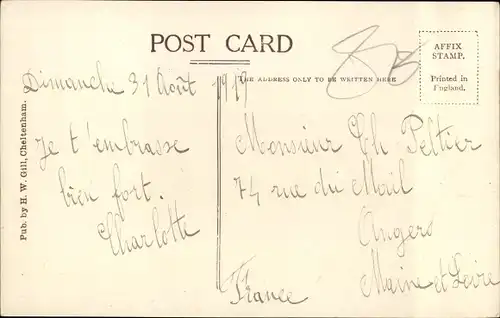 POST CARD
AFFIX
STAMP.
Printed in
England.
THE ADDRESS ONLY TO BE WRITTEN HERE
Dimanche 31 Août 1919
Je t'embrasse
bien fort.
Charlotte
Monsieur Ch Peltier
74 rue du Mail
Angers
Maine et Loire
France
Pub. by H. W. Gill, Cheltenham.